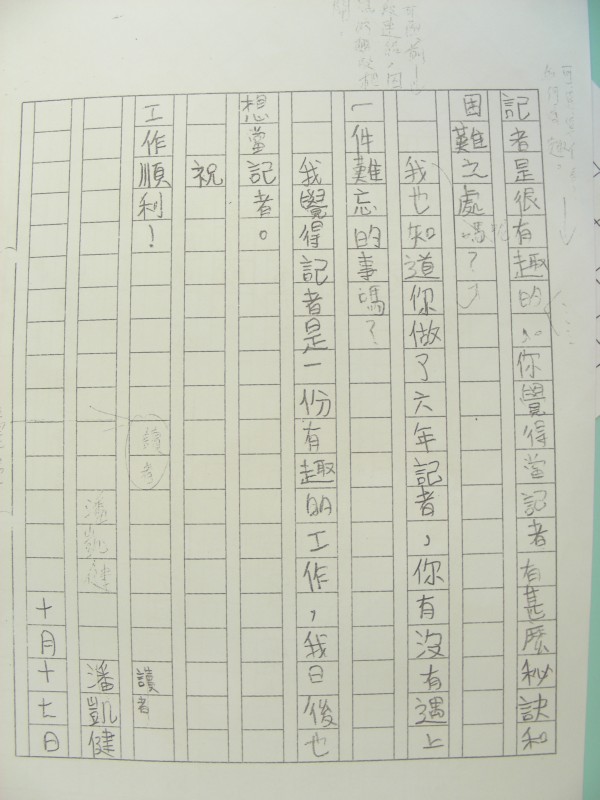 記者是很有趣的。你覺得當記者有甚麼秘訣和
困難之處嗎?
我也知道你做了六年記者,你有沒有遇上
一件難忘的事嗎?
我覺得記者是一份有趣的工作,我日後也
想當記者。
祝
工作順利!
讀者
讀者
潘凱健
潘凱健
十月十七日